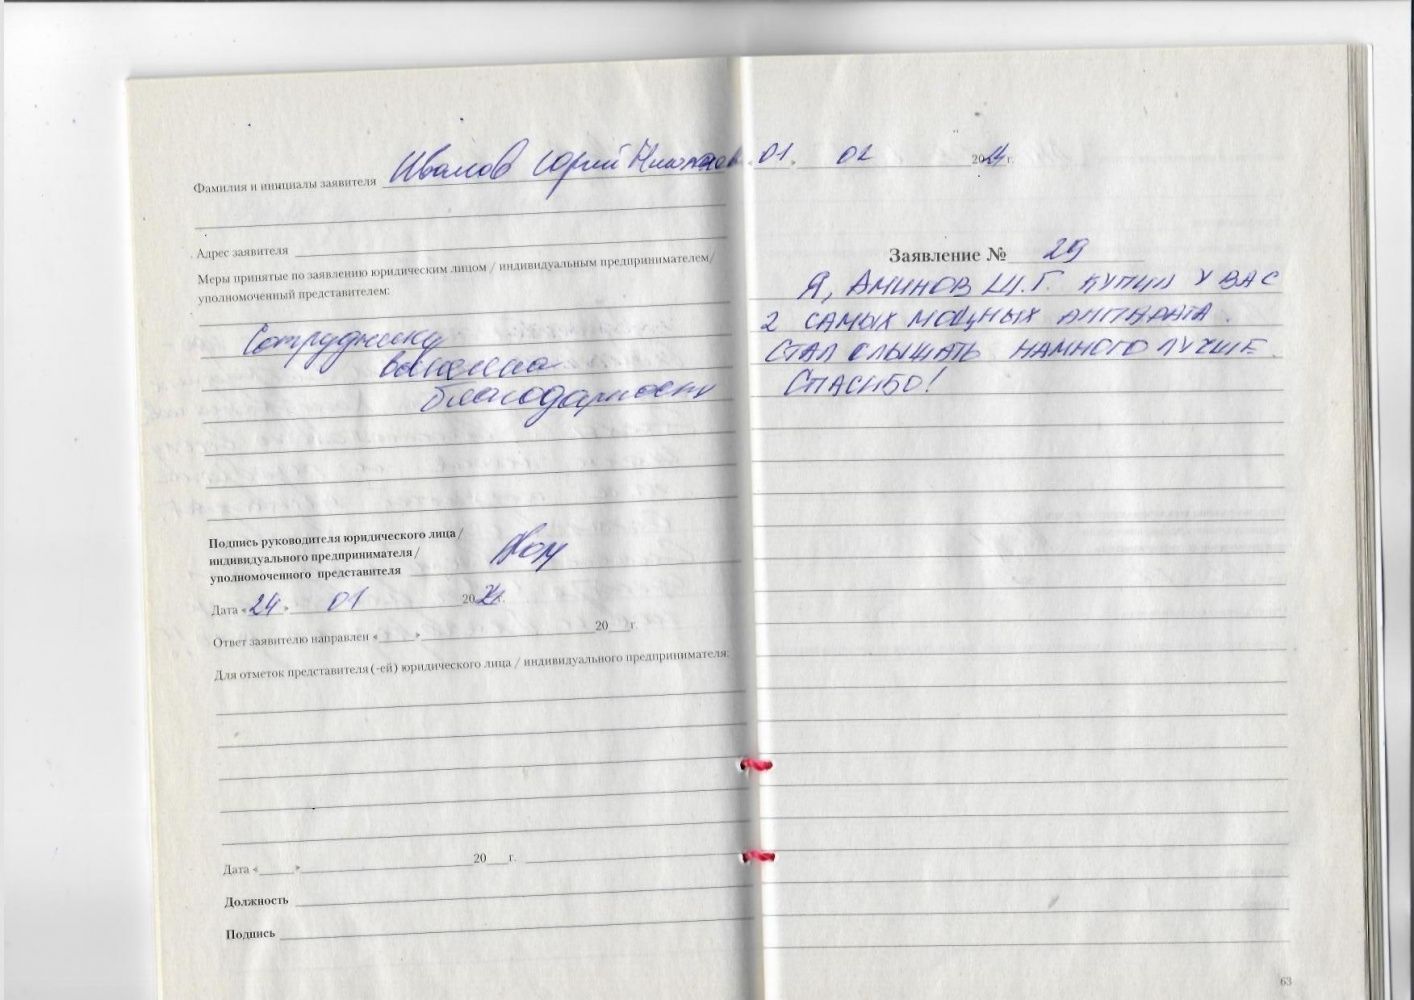 Фамилия и инициалы заявителя Иванов Юрий
Адрес заявителя
Меры принятые по заявлению юридическим лицом / индивидуальным предпринимателем/
уполномоченный представителем:
Сотруднику
вынесена
благодарность
Подпись руководителя юридического лица /
индивидуального предпринимателя /
уполномоченного представителя
Дата « 24 » 01 2024г.
Ответ заявителю направлен « » 20 г.
Для отметок представителя (-ей) юридического лица / индивидуального предпринимателя:
Дата « » 20 г.
Должность
Подпись
01. 02 2024г.
Заявление № 29
Я, АМИНОВ Ш.Г. КУПИЛ У ВАС
2 САМЫХ МОЩНЫХ АППАРАТА.
СТАЛ СЛЫШАТЬ НАМНОГО ЛУЧШЕ.
СПАСИБО!
63